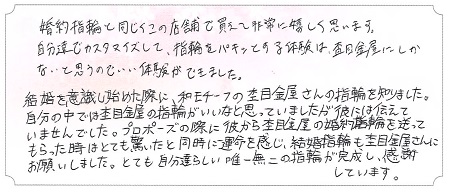 婚約指輪と同じくこの店舗で買えて非常に嬉しく思います。
自分達でカスタマイズして、指輪をパキッとする体験は、杢目金屋にしか
ないと思うのでいい体験ができました。
結婚を意識し始めた際に、和モチーフの杢目金屋さんの指輪を知りました。
自分の中では杢目金屋の指輪がいいなと思っていましたが彼には伝えて
いませんでした。プロポーズの際に彼から杢目金屋の婚約指輪を送って
もらった時はとても驚いたと同時に運命を感じ、結婚指輪も杢目金屋さんに
お願いしました。とても自分達らしい唯一無二の指輪が完成し、感謝
しています。